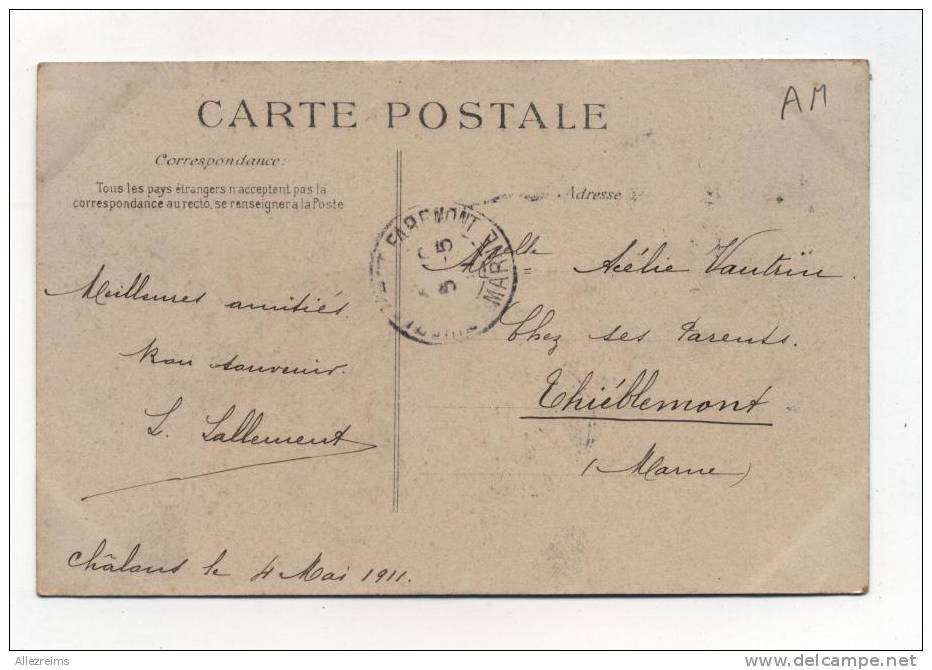 AM
CARTE POSTALE
Correspondance:
Tous les pays étrangers n'acceptent pas la
correspondance au recto, se renseigner à la Poste
Adresse
FAREMONT
MARNE
5 - 5
Melle Acélie Vautrin
Chez ses Parents.
Thiéblemont
(Marne)
Meilleures amitiés.
Bon souvenir.
L. Lallement
Châlons le 4 Mai 1911.
Allezreims
www.delcampe.net